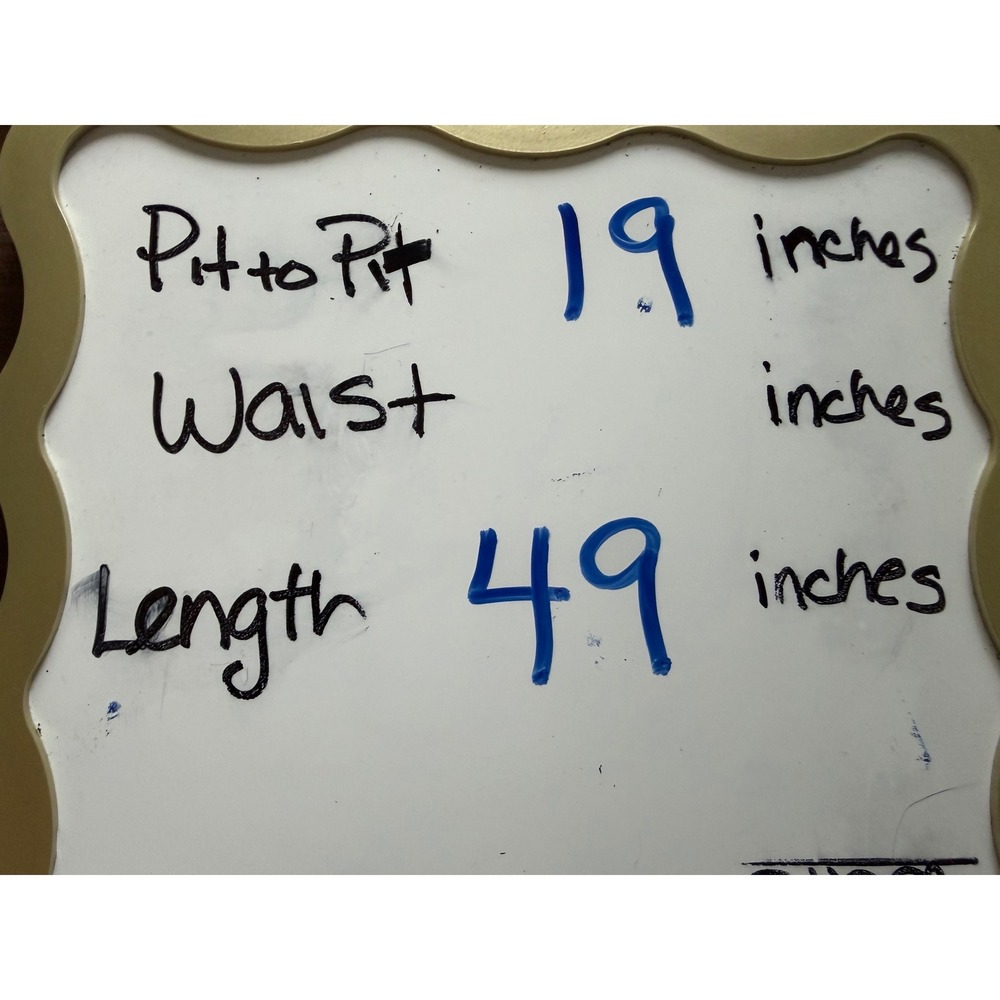 Pit to Pit 19 inches
Waist inches
Length 49 inches